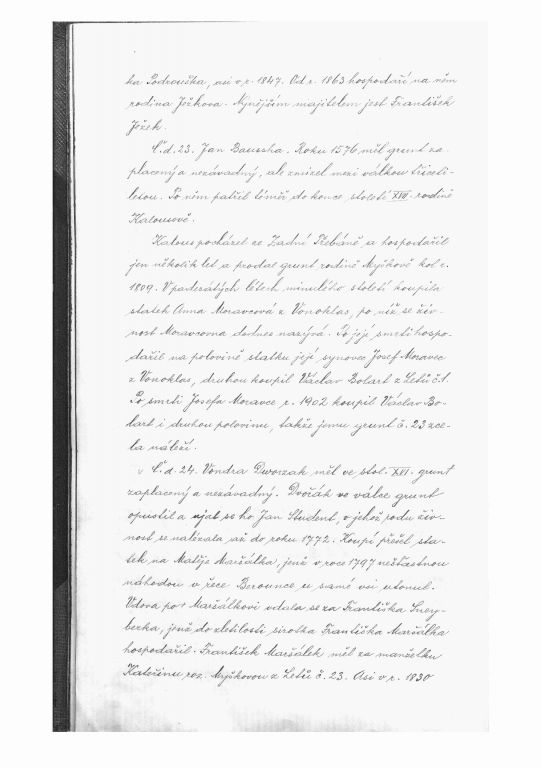 ka Podrouška, asi v r. 1847. Od r. 1863 hospodaří na něm
rodina Ježkova. Nynějším majitelem jest František
Ježek.
Č.d. 23. Jan Baussha. Roku 1576 měl grunt za-
placený a nezávadný, ale zmizel mezi válkou třiceti-
letou. Po něm patřil téměř do konce století XVIII rodině
Kalousově.
Kalous pocházel ze Zadní Třebáně a hospodařil
jen několik let a prodal grunt rodině Myškově kol r.
1809. V padesátých létech minulého století koupila
statek Anna Moravcová z Vonoklas, po níž se živ-
nost Moravcovna dodnes nazývá. Po její smrti hospo-
dařil na polovině statku její synovec Josef Moravec
z Vonoklas, druhou koupil Václav Bolart z Letů č. 1.
Po smrti Josefa Moravce, r. 1902 koupil Václav Bo-
lart i druhou polovinu, takže jemu grunt č. 23 zce-
la náleží.
v Č.d. 24. Vondra Dworzak měl ve stol. XVI. grunt
zaplacený a nezávadný. Dvořák ve válce grunt
opustil a ujal se ho Jan Student, v jehož rodu živ-
nost se nalézala až do roku 1772. Koupí přešel sta-
tek na Matěje Maršálka, jenž v roce 1797 nešťastnou
náhodou v řece Berounce u samé vsi utonul.
Vdova po Maršálkovi vdala se za Františka Šney-
berka, jenž do zletilosti sirotka Františka Maršálka
hospodařil. František Maršálek měl za manželku
Kateřinu roz. Myškovou z Letů č. 23. Asi v r. 1830